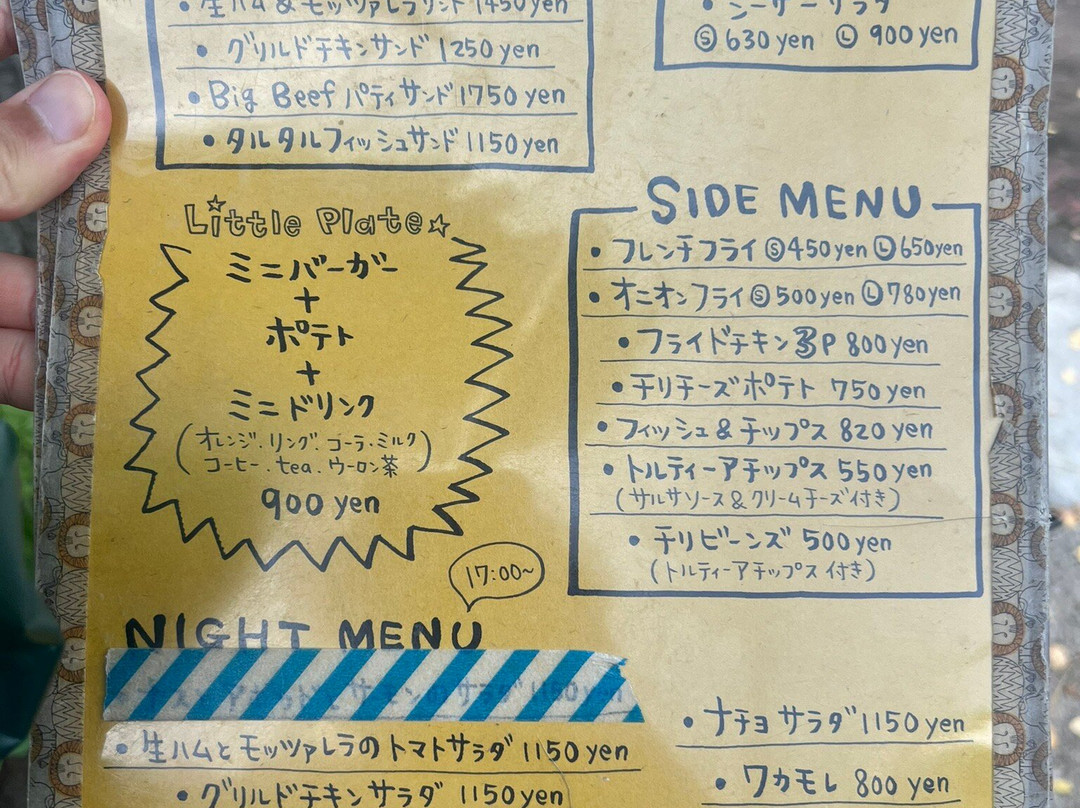 • 生ハム & モッツァレラサンド 1450 yen
• グリルドチキンサンド 1250 yen
• Big Beef パティサンド 1750 yen
• タルタルフィッシュサンド 1150 yen
• シーザーサラダ
Ⓢ 630 yen Ⓛ 900 yen
Little Plate☆
ミニバーガー
+
ポテト
+
ミニドリンク
(オレンジ.リンゴ.コーラ.ミルク
コーヒー.tea.ウーロン茶)
900 yen
SIDE MENU
• フレンチフライ Ⓢ450yen Ⓛ650yen
• オニオンフライ Ⓢ500yen Ⓛ780yen
• フライドチキン 3P 800yen
• チリチーズポテト 750 yen
• フィッシュ&チップス 820 yen
• トルティーアチップス 550 yen
(サルサソース&クリームチーズ付き)
• チリビーンズ 500 yen
(トルティーアチップス付き)
17:00~
NIGHT MENU
サラダ 1150 yen
• 生ハムとモッツァレラのトマトサラダ 1150 yen
• グリルドチキンサラダ 1150 yen
• ナチョサラダ 1150 yen
• ワカモレ 800 yen